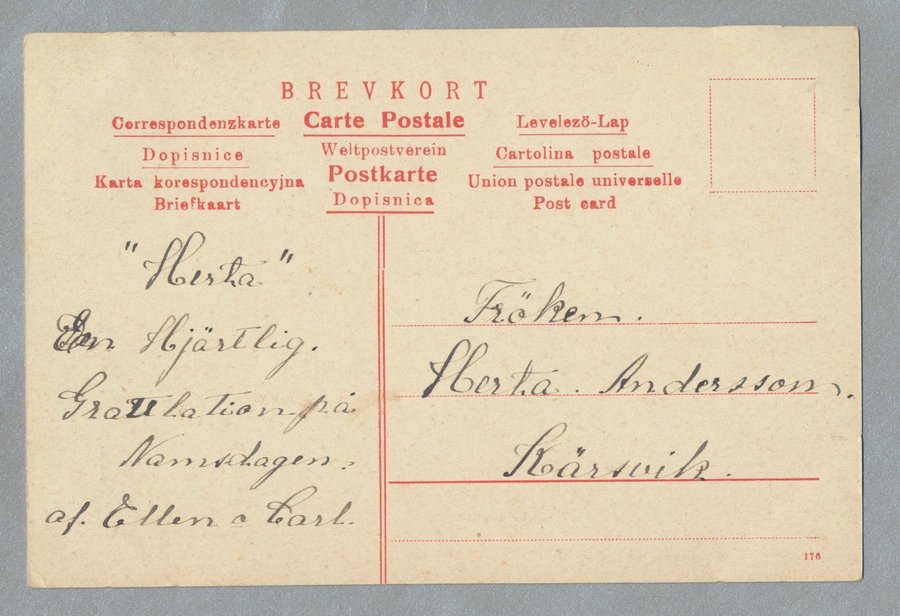 BREVKORT
Correspondenzkarte Carte Postale Levelezö-Lap
Dopisnice Weltpostverein Cartolina postale
Karta korespondencyjna Postkarte Union postale universelle
Briefkaart Dopisnica Post card
"Herta"
En Hjärtlig.
Graulation på
Namsdagen.
af. Ellen o Carl.
Fröken.
Herta. Andersson.
Kärsvik.
176